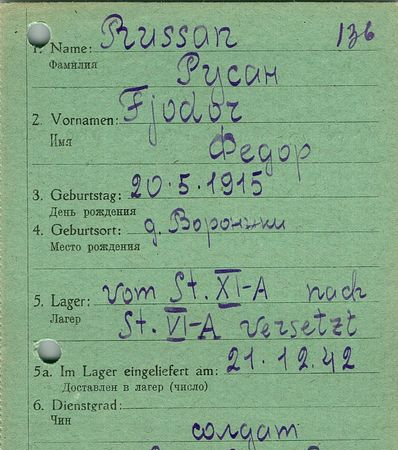 Russan 136
1. Name:
Фамилия
Русан
2. Vornamen: Fjodor
Имя
Федор
3. Geburtstag: 20.5.1915
День рождения
4. Geburtsort: д. Воронжки
Место рождения
5. Lager: vom St. XI-A nach
Лагер St. VI-A versetzt
5a. Im Lager eingeliefert am: 21.12.42
Доставлен в лагер (число)
6. Dienstgrad:
Чин
солдат